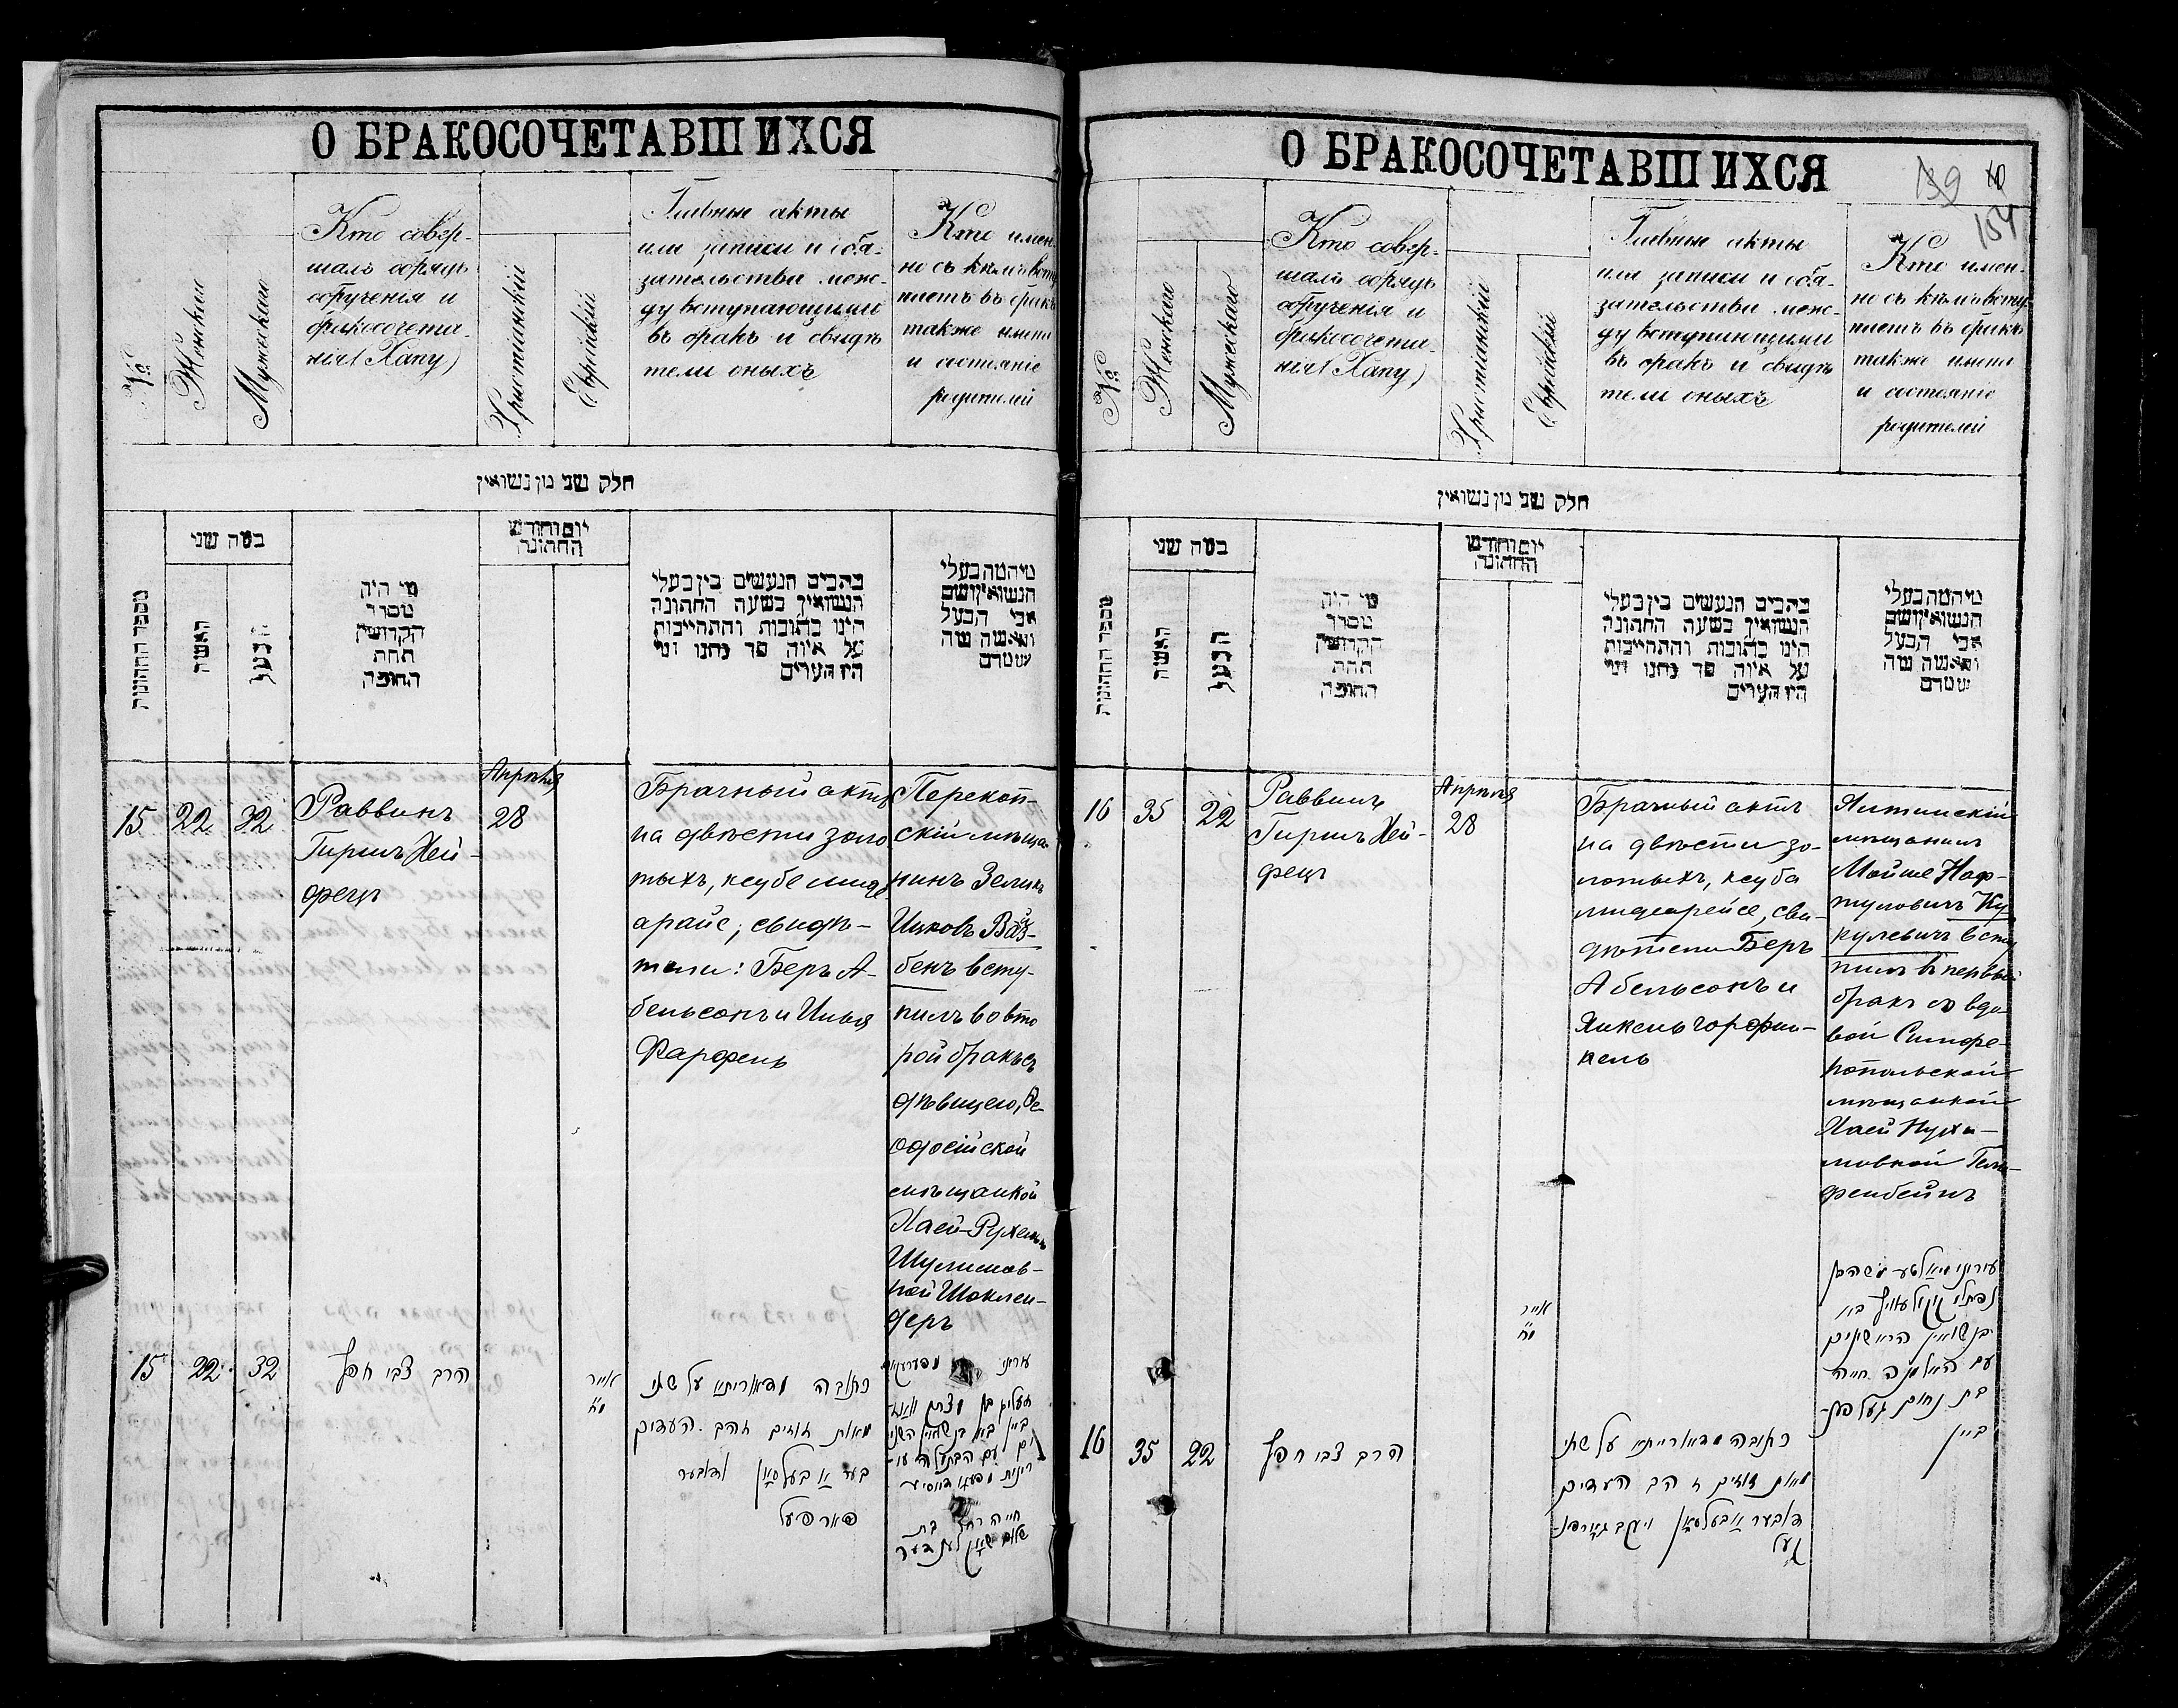 О БРАКОСОЧЕТАВШИХСЯ
№
Женский
Мужескаго
Кто совер-
шалъ обрядъ
обрученія и
бракосочета-
нія (Хапу)
Христіанскій
Еврейскій
Главные акты
или записи и обя-
зательства меж-
ду вступающими
въ бракъ и свидѣ
тели оныхъ
Кто имен-
но съ кѣмъ всту
паетъ въ бракъ
также имена
и состояніе
родителей
חלק שני מן נשואין
מספר החתונות
במה שני
האשה
הבעל
מי היה
מסדר
הקדושין
תחת
החופה
יום וחודש
החתונה
מהכים הנעשים בין בעלי
הנשואין בשעה החתונה
הינו כתובות והתחייבות
על איזה סך נתנו ומי
היו העדים
מיהמה בעלי
הנשואין ושם
אבי הבעל
והאשה מה
שמדם
15
22
32
Раввинъ
Гиршъ Хей-
фецъ
Апрѣля
28
Брачный актъ
на двѣсти золо
тыхъ, ксубе мидэ
арайс; свидѣ-
тели: Беръ А-
бельсонъ и Илья
Фарфель
Перекоп-
скій мѣща-
нинъ Зеликъ
Ицковъ Вайз-
бенъ всту-
пилъ во вто
рой бракъ съ
дѣвицею, Ѳе-
одосійской
мѣщанкой
Хаей-Рухель
Шулимов-
ной Шоклен-
деръ
15
22
32
הרב צבי חפץ
אייר
כתובה מדאורייתא על שתי
מאות זוזים זהב. העדים
בער אבעלסאן
פארפעל
חיה רחל בת
О БРАКОСОЧЕТАВШИХСЯ
139
10
154
№
Женскаго
Мужескаго
Кто совер-
шалъ обрядъ
обрученія и
бракосочета-
нія (Хапу)
Христіанскій
Еврейскій
Главные акты
или записи и обя-
зательства меж-
ду вступающими
въ бракъ и свидѣ
тели оныхъ
Кто имен-
но съ кѣмъ всту-
паетъ въ бракъ
также имена
и состояніе
родителей
חלק שני מן נשואין
מספר החתונות
במה שני
האשה
הבעל
מי היה
מסדר
הקדושין
תחת
החופה
יום וחודש
החתונה
מהכים הנעשים בין בעלי
הנשואין בשעה החתונה
הינו כתובות והתחייבות
על איזה סך נתנו ומי
היו העדים
מיהמה בעלי
הנשואין ושם
אבי הבעל
והאשה מה
שמדם
16
35
22
Раввинъ
Гиршъ Хей-
фецъ
Апрѣля
28
Брачный актъ
на двѣсти зо-
лотыхъ, ксуба
мидеорейсе, сви-
дѣтели Беръ
Абельсонъ и
Янкель Горфин-
кель
Ялтинскій
мѣщанинъ
Мойше Наф-
туловичъ Ку-
кулевичъ всту
пилъ въ первый
бракъ со вдо-
вой Симфе-
ропольской
мѣщанкой
Хаей Нухи-
мовной Гель-
фенбейнъ
אייר
נפתלי
נשואין הראשונים
עם האלמנה חיה
בת נחום העלפענ-
ביין
16
35
22
הרב צבי חפץ
כתובה מדאורייתא על שתי
מאות זוזים זהב העדים
אבעלסאן ויעקב גארפינ-
קעל